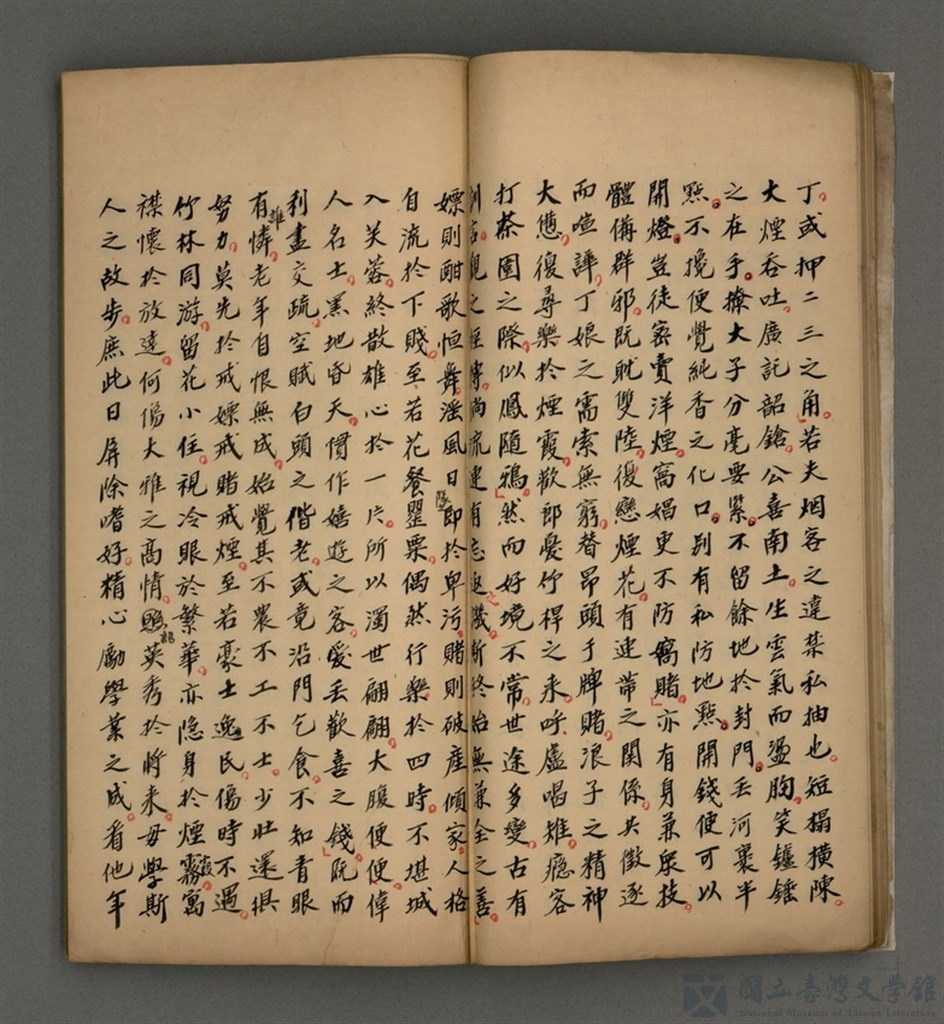 丁。或押二三之角。若夫烟客之違禁私抽也。短榻橫陳。
大煙吞吐。廣託韶鎗。公喜南土。生雲氣而盪胸。笑鑪錘
之在手。撩大子分毫要緊。不留餘地於封門。丟河裏半
點。不攪便覺純香之化口。別有私防地點。開錢便可以
開燈。豈徒密賣洋煙。窩娼更不防窩賭。亦有身兼眾技。
體備群邪。既耽雙陸。復戀煙花。有連帶之関係。共徵逐
而喧譁。丁娘之需索無窮。替昂頭于牌賭。浪子之精神
大憊。復尋樂於煙霞。歡郎憂竹桿之來。呼盧唱雉。癮客
打茶圍之際。似鳳随鴉。然而好境不常。世途多變。古有
之譏。斯終始無兼全之善。
嫖則酣歌恒舞。滛風日即於卑污。賭則破産傾家。人格
自流於下賤。至若花餐罌粟。偶然行樂於四時。不堪城
入芙蓉。終散雄心於一片。所以濁世翩翩。大腹便便。偉
人名士。黑地昏天。慣作嬉遊之客。愛丟歡喜之錢。既而
利盡交疏。空賦白頭之偕老。或竟沿門乞食。不知青眼
有誰憐。老年自恨無成。始覺其不農不工不士。少壯還須
努力。莫先於戒嫖戒賭戒煙。至若豪士逸民。傷時不遇。
竹林同游。留花小住。視冷眼於繁華。亦隐身於煙霧。寓
襟懷於放達。何傷大雅之高情。英秀於将来。毋學斯
人之故步。庶此日屏除嗜好。精心勵學業之成。看他年
國立臺灣文學館
National Museum of Taiwan Literature